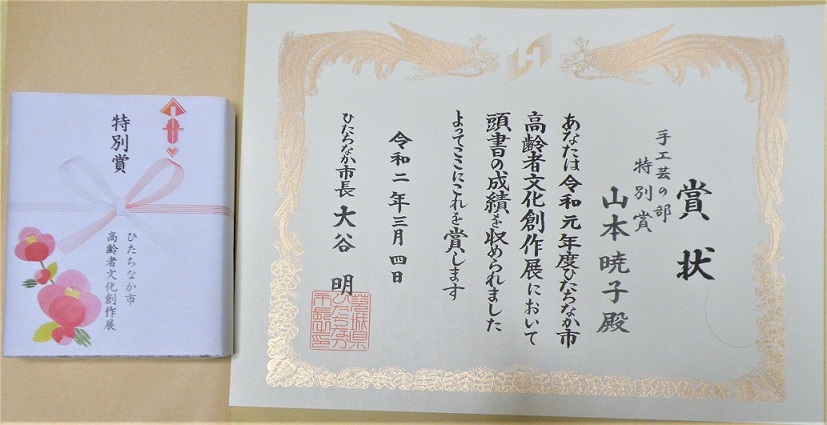 賞状
手工芸の部
特別賞
山本暁子殿
あなたは令和元年度ひたちなか市
高齢者文化創作展において
頭書の成績を収められました
よってここにこれを賞します
令和二年三月四日
ひたちなか市長 大谷 明
特別賞
ひたちなか市
高齢者文化創作展